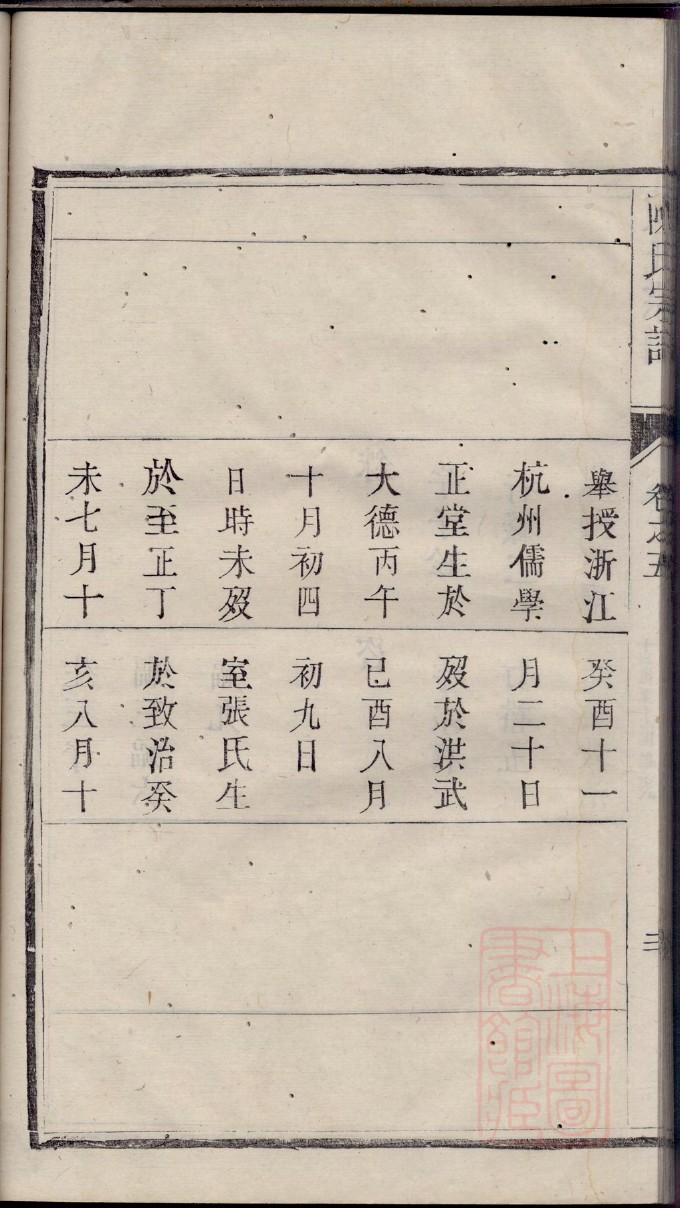 陳氏宗譜
卷之五
舉授浙江
杭州儒學
正堂生於
大德丙午
十月初四
日時未歿
於至正丁
未七月十
癸酉十一
月二十日
歿於洪武
已酉八月
初九日
室張氏生
於致治癸
亥八月十
上海圖
書館藏